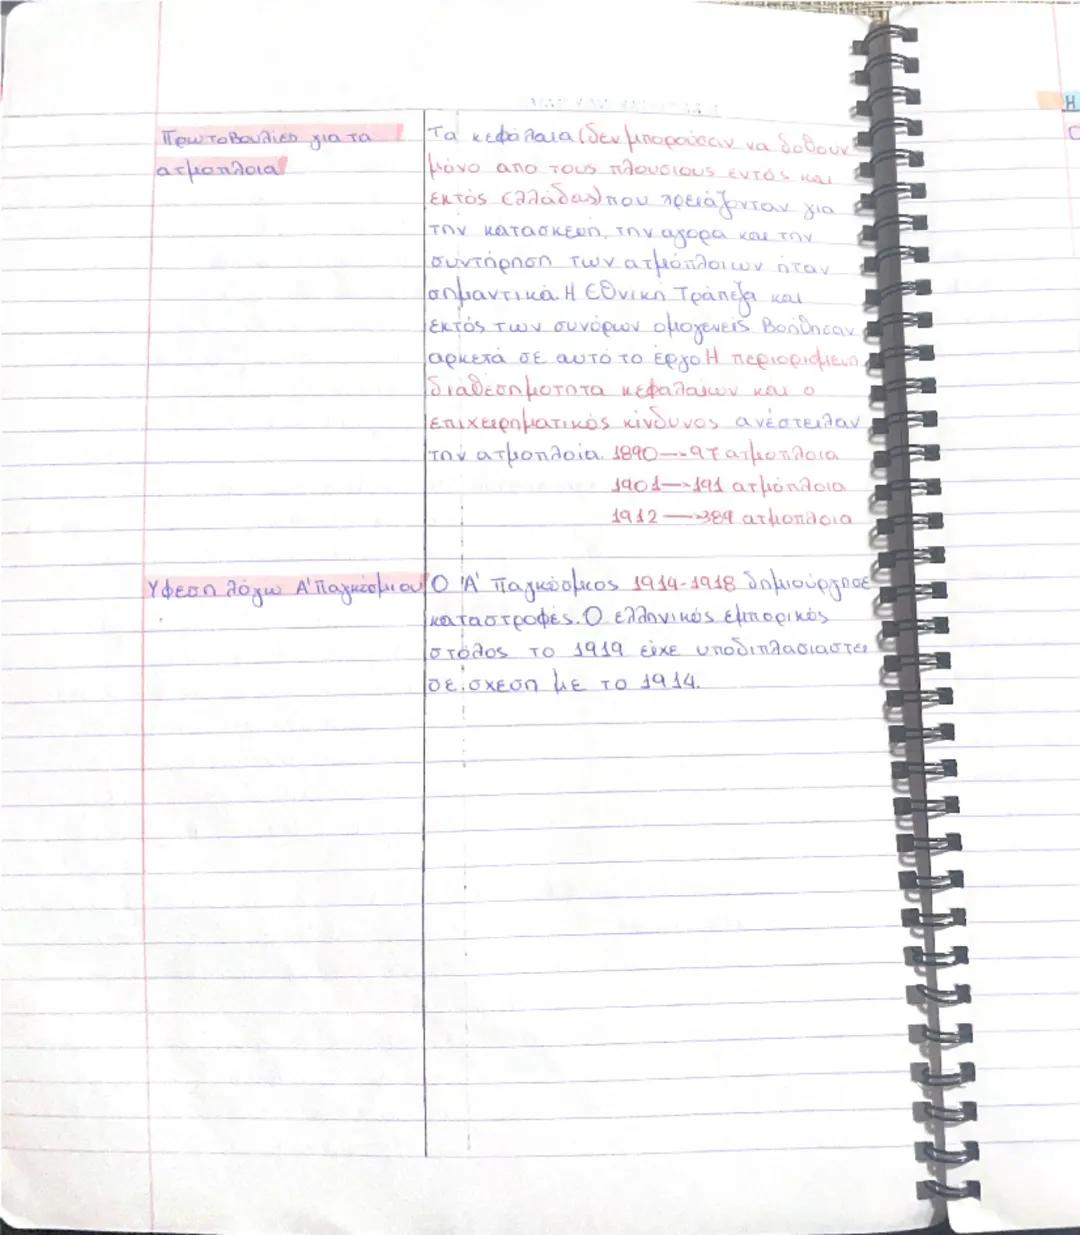 Πρωτοβουλίες για τα
ατμοπλοια
Τα κεφάλαια (δεν μπορούσαν να δοθουν
μόνο απο τους πλουσιους εντός και
εκτός Ελλάδας) που χρειάζονταν για
την κατασκευη, την αγορα και την
συντήρηση των ατμόπλοιων ήταν
σημαντικά. Η Εθνική Τράπεζα και
εκτός των συνόρων ομογενείς βοήθησαν
αρκετά σε αυτό το έργο. Η περιορισμενη
διαθεσημοτητα κεφαλαίων και ο
επιχειρηματικός κίνδυνος ανέστειλαν
την ατμοπλοία. 1890→97 ατμοπλοια
1901→191 ατμόπλοια
1912→389 ατμοπλοια
Υφεση λόγω Α' Παγκόσμιου
Ο Ά' Παγκόσμιος 1914-1918 δημιούργησε
καταστροφές. Ο ελληνικός εμπορικός
στόλος το 1919 είχε υποδιπλασιαστει
σε σχεση με το 1914.
Η